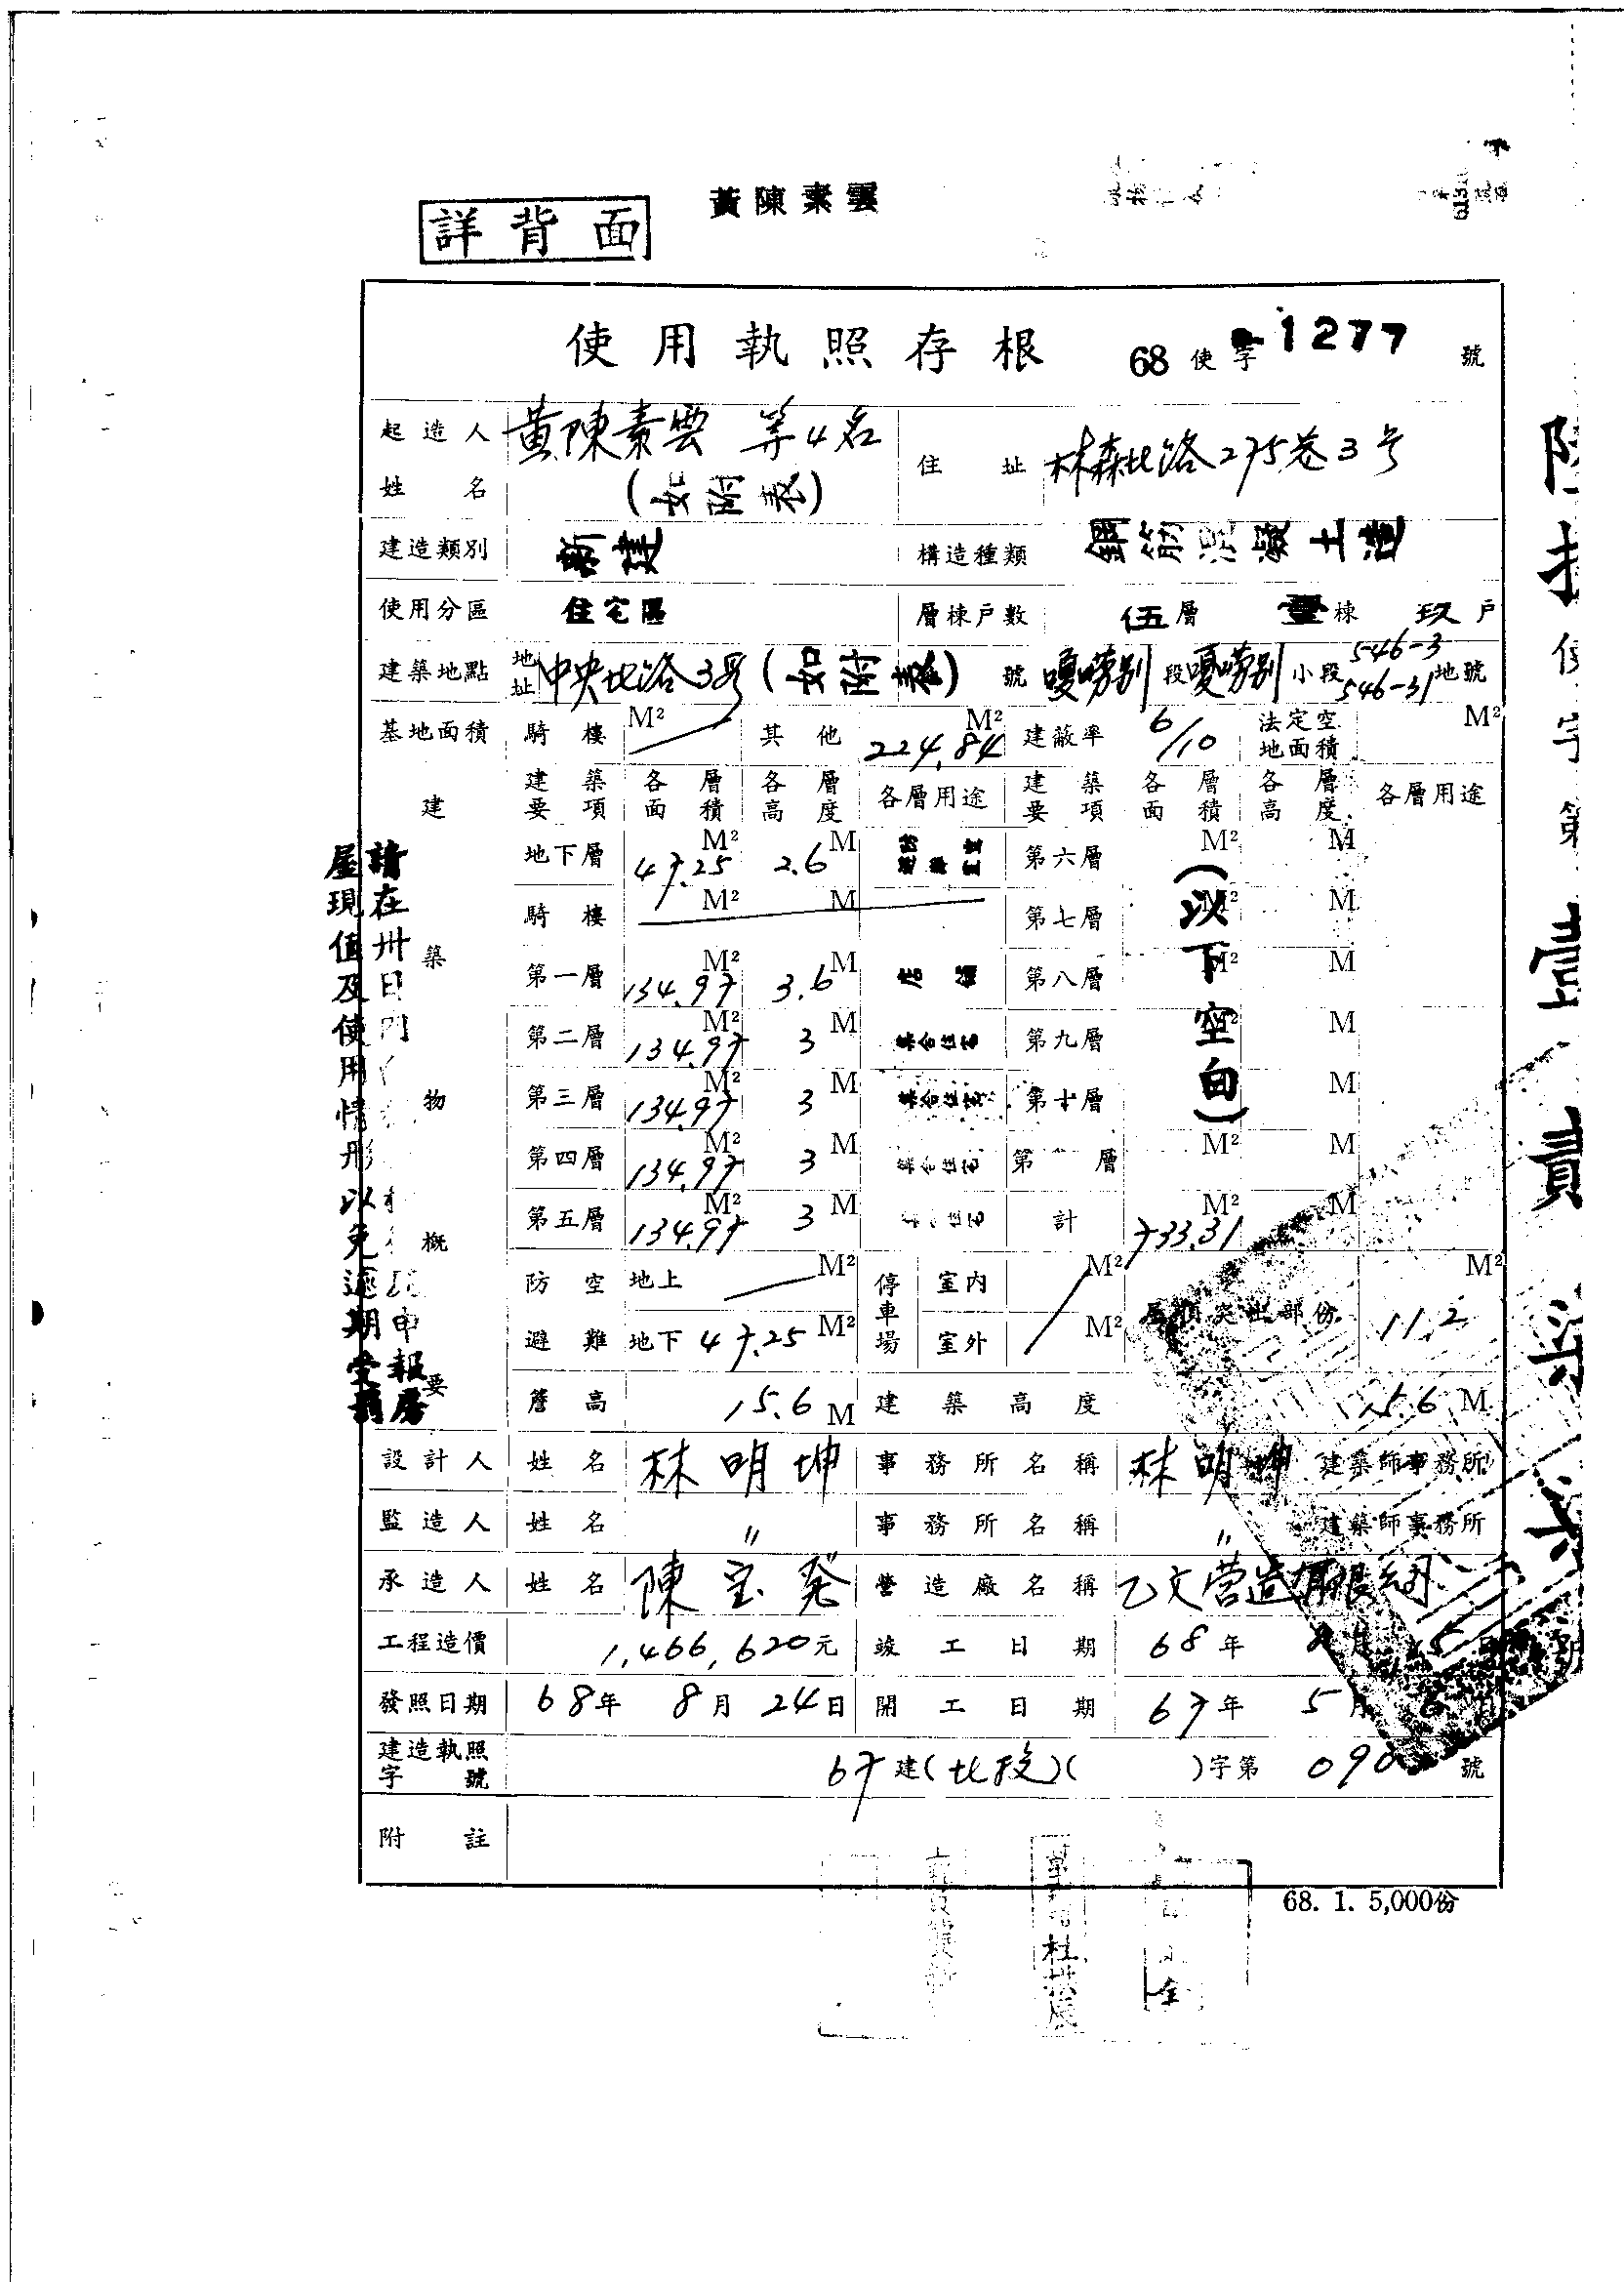 黃陳素雲
詳背面
使用執照存根 68 使字 1277 號
起造人姓名 黃陳素雲 等4名 (如附表) 住址 林森北路275巷3号
建造類別 新建 構造種類 鋼筋混凝土造
使用分區 住宅區 層棟戶數 伍層 壹棟 玖戶
建築地點 地址 中央北路3号(如附表) 號 嗄嘮別段 嗄嘮別小段 546-3 546-31 地號
基地面積 騎樓 M² 其他 224.84 M² 建蔽率 6/10 法定空地面積 M²
建築物概要
建築要項 各層面積 各層高度 各層用途 建築要項 各層面積 各層高度 各層用途
地下層 47.25 M² 2.6 M 第六層 M² M
騎樓 M² M 第七層 M² M
第一層 134.97 M² 3.6 M 店舖 第八層 M² M
第二層 134.97 M² 3 M 集合住宅 第九層 M² M
第三層 134.97 M² 3 M 集合住宅 第十層 M² M
第四層 134.97 M² 3 M 集合住宅 第 層 M² M
第五層 134.97 M² 3 M 計 733.31 M² M
(以下空白)
防空避難 地上 M² 停車場 室內 M² 屋頂突出部份 11.2 M²
地下 47.25 M² 室外 M²
簷高 15.6 M 建築高度 15.6 M
設計人 姓名 林明坤 事務所名稱 林明坤 建築師事務所
監造人 姓名 〃 事務所名稱 〃 建築師事務所
承造人 姓名 陳宝發 營造廠名稱 乙文营造有限公司
工程造價 1,466,620元 竣工日期 68年 8月
發照日期 68年 8月 24日 開工日期 67年 5月
建造執照字號 67建(北投)( )字第 090 號
附註
68. 1. 5,000份
請在卅日內 申報房
屋現值及使用情形以免逾期受罰